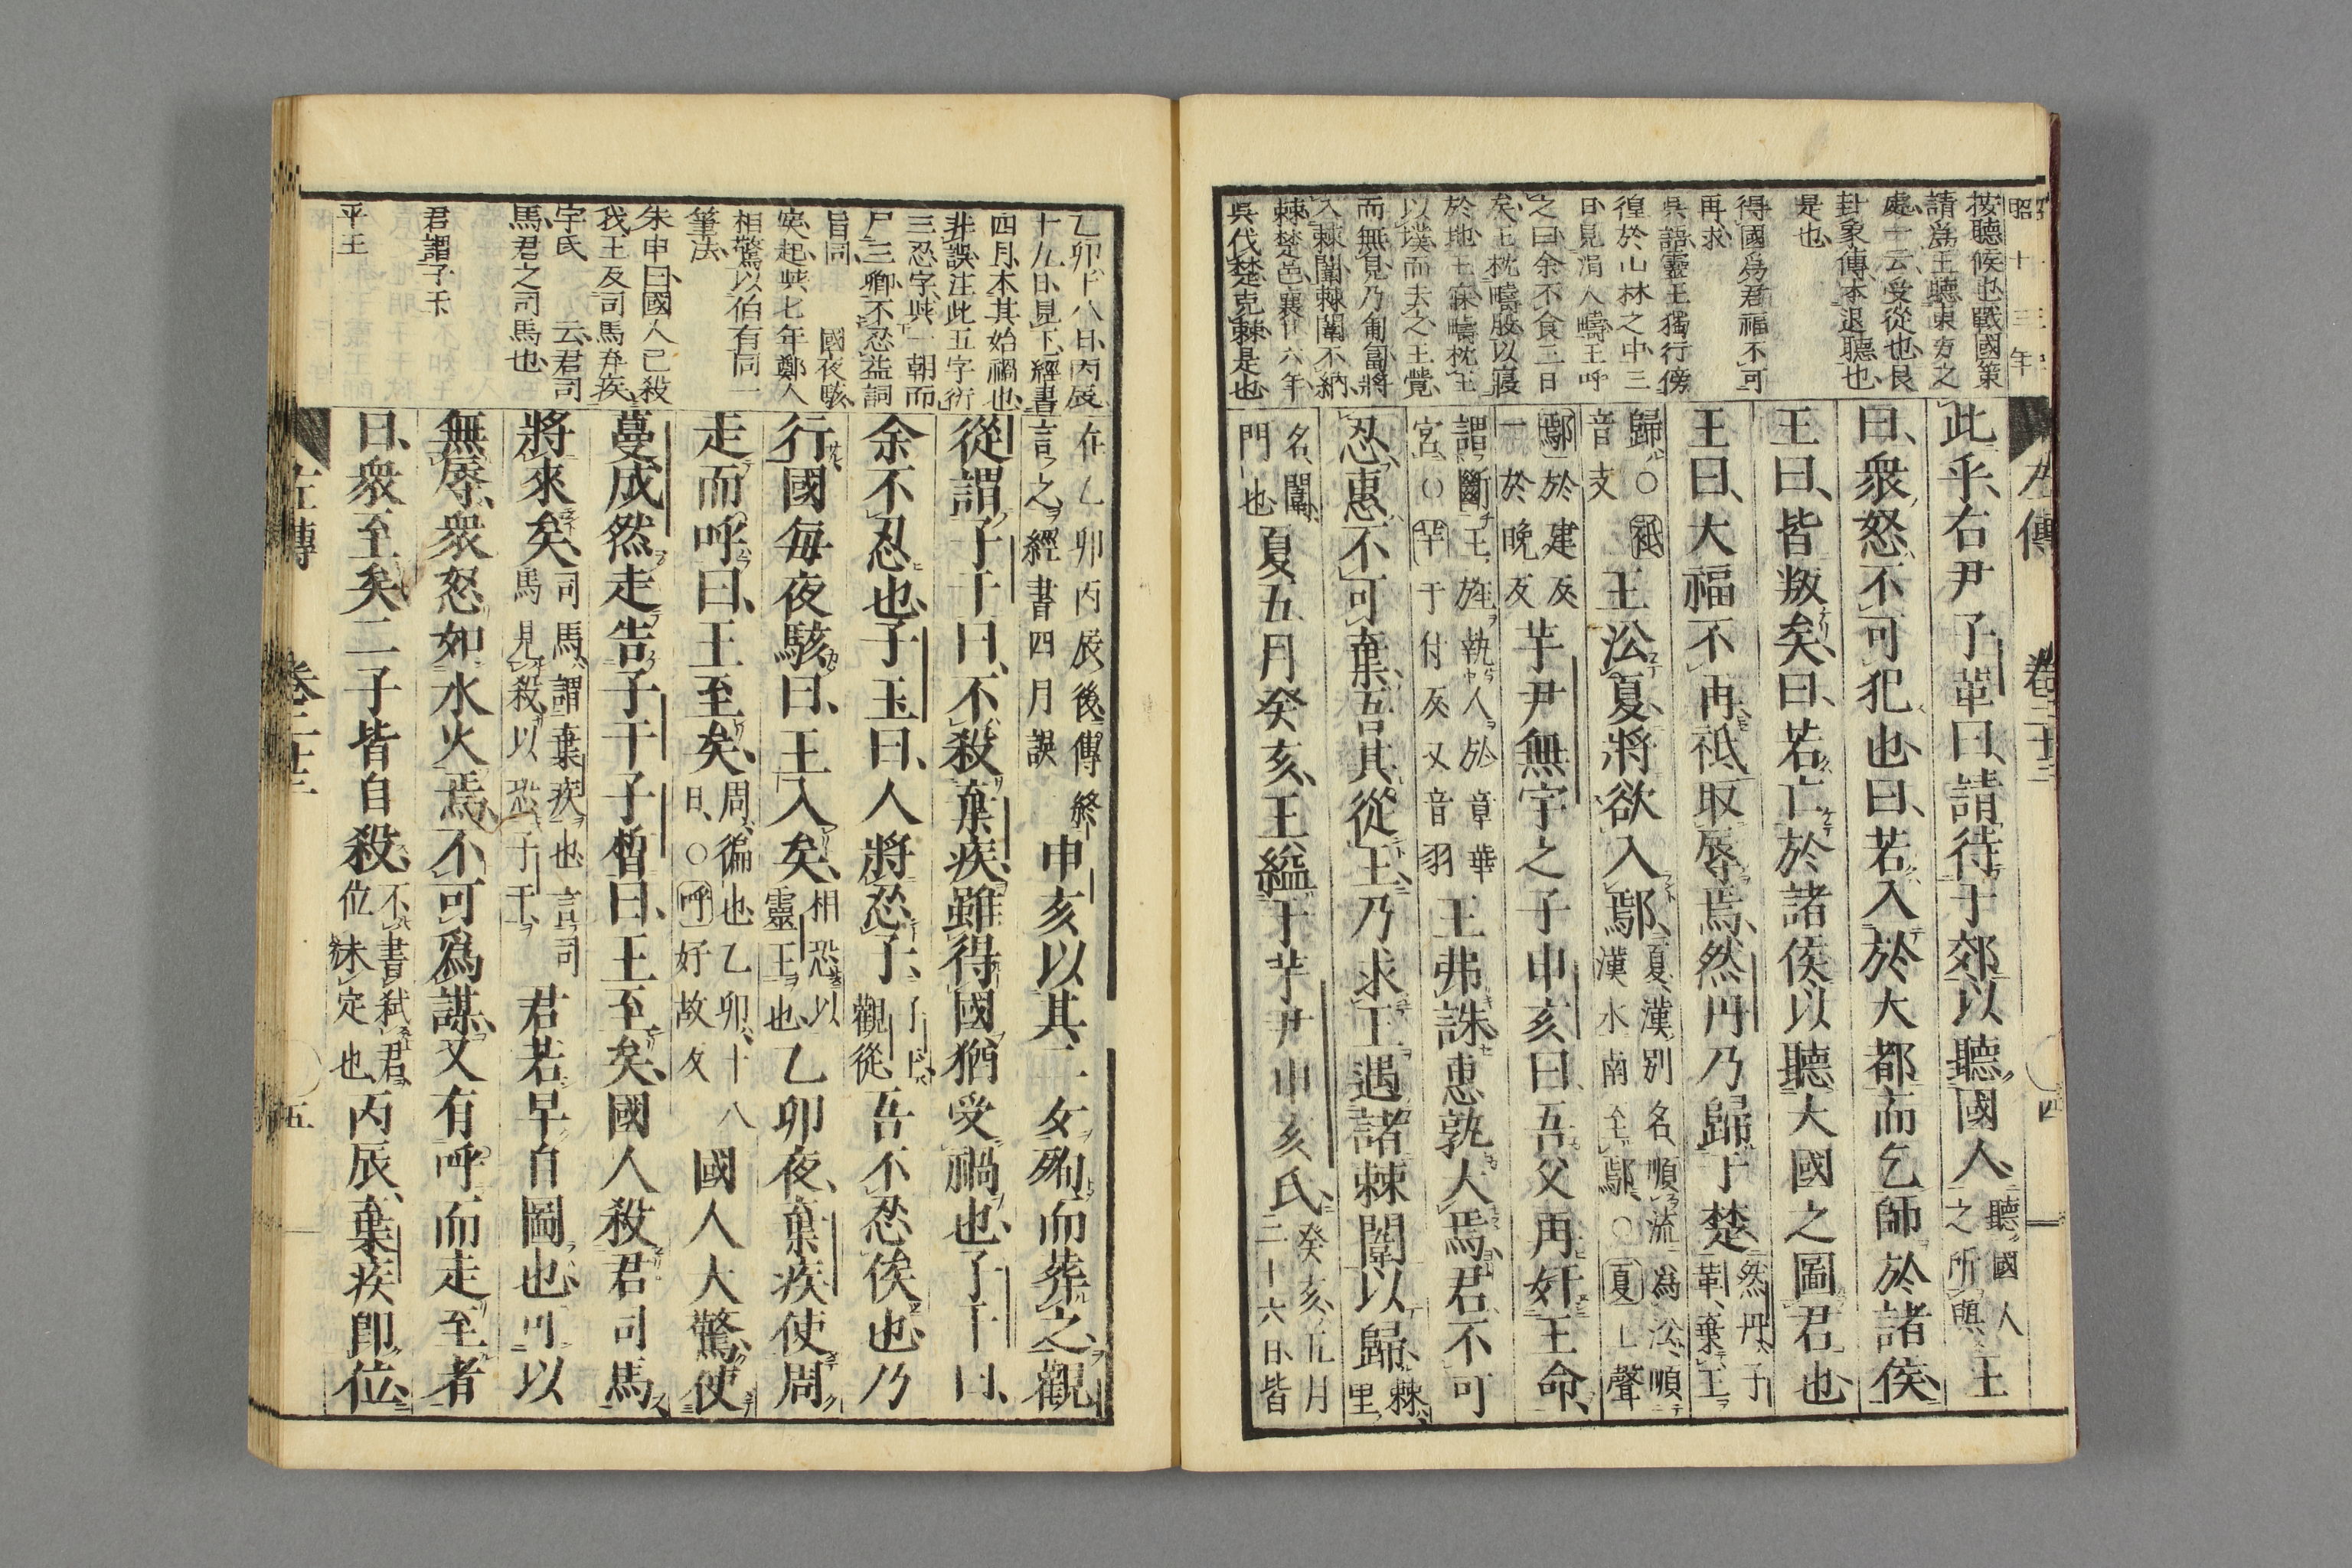 昭十三年
按聽候也戰國策
請爲王聽東方之
處士云受從也艮
卦象傳不退聽也
是也
得國爲君福不可
再求
吳語靈王獨行傍
徨於山林之中三
日見涓人疇王呼
之曰余不食三日
矣王枕疇股以寢
於地王寐疇枕王
以墣而去之王覺
而無見乃匍匐將
入棘闈棘闈不納
棘楚邑襄廿六年
吳伐楚克棘是也
左傳 卷二十三 四
此乎右尹子革曰請待于郊以聽國人聽國人之所與王
曰衆怒不可犯也曰若入於大都而乞師於諸侯
王曰皆叛矣曰若亡於諸侯以聽大國之圖君也
王曰大福不再祗取辱焉然丹乃歸于楚然丹子革棄王
歸○祗音支王沿夏將欲入鄢夏漢別名順流爲沿順漢水南至鄢○夏上聲
鄢於建反一於晚反芋尹無宇之子申亥曰吾父再奸王命
謂斷王旌執人於章華宮○芋于付反又音羽王弗誅惠孰大焉君不可
忍惠不可棄吾其從王乃求王遇諸棘闈以歸棘里
名闈門也夏五月癸亥王縊于芋尹申亥氏癸亥五月二十六日皆
乙卯十八日丙辰
十九日見下經書
四月本其始禍也
非誤注此五字衍
三忍字與一朝而
尸三卿不忍益詞
旨同 國夜駭
突起與七年鄭人
相驚以伯有同一
筆法
朱申曰國人已殺
我王及司馬弃疾
字氏 云君司
馬君之司馬也
君謂子干
平王
在乙卯丙辰後傳終言之經書四月誤申亥以其二女殉而葬之觀
從謂子干曰不殺棄疾雖得國猶受禍也子干曰
余不忍也子玉曰人將忍子子干觀從吾不忍俟也乃
行國每夜駭曰王入矣相恐以靈王也乙卯夜棄疾使周
走而呼曰王至矣周徧也乙卯十八日○呼好故反國人大驚使
蔓成然走告子干子皙曰王至矣國人殺君司馬
將來矣司馬謂棄疾也言司馬見殺以恐子干君若早自圖也可以
無辱衆怒如水火焉不可爲謀又有呼而走至者
曰衆至矣二子皆自殺不書弑君位未定也丙辰棄疾即位
左傳 卷二十三 五